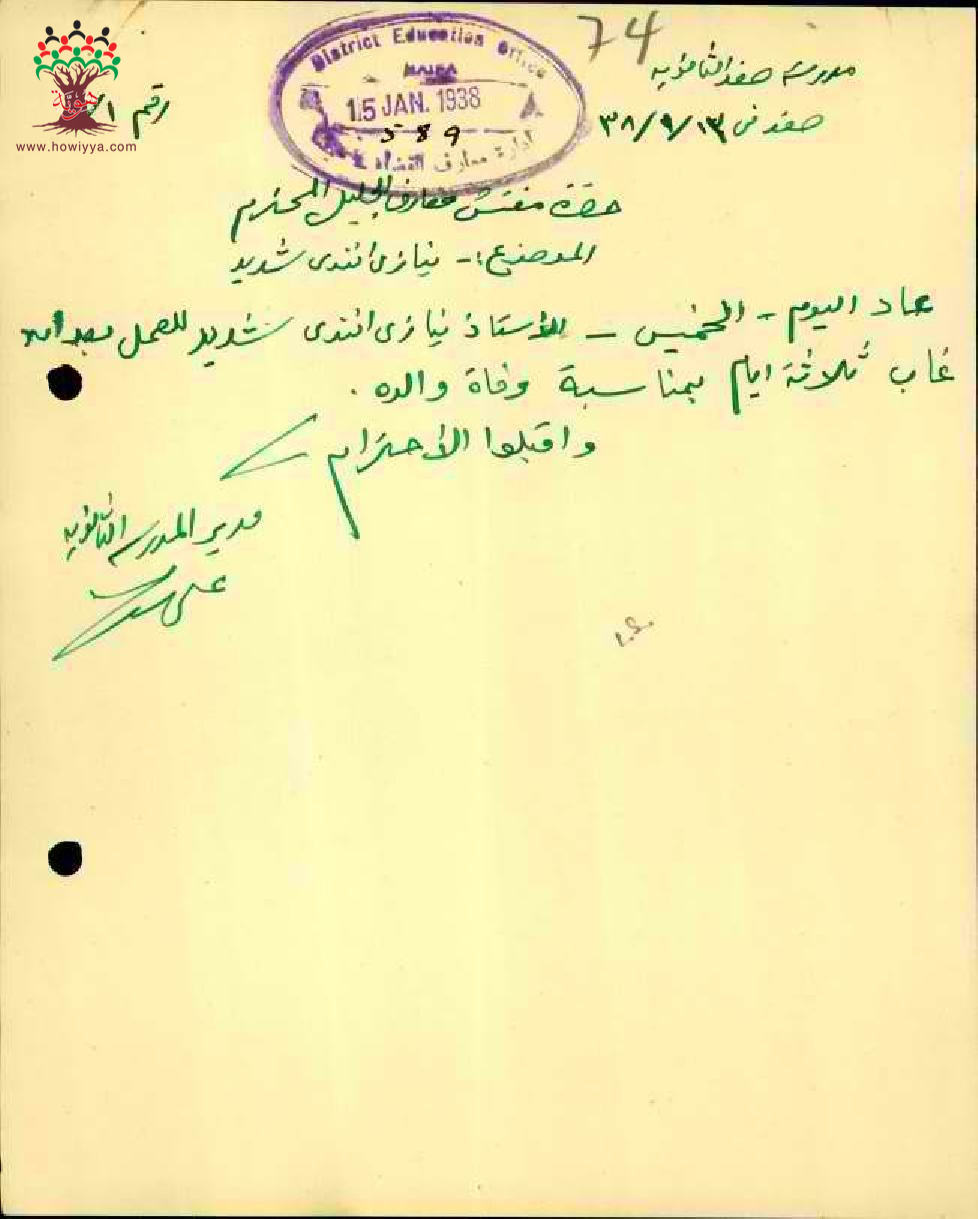 74
مدرسة صفد الثانوية
صفد في ١٣/١/٣٨
رقم
District Education Office
HAIFA
15 JAN. 1938
589
إدارة معارف
حضرة مفتش معارف الجليل المحترم
الموضوع :- نيازي افندي شديد
عاد اليوم - الخميس - الأستاذ نيازي افندي شديد للعمل بعد ان
غاب ثلاثة ايام بمناسبة وفاة والده .
واقبلوا الاحترام
مدير المدرسة الثانوية
هوية
www.howiyya.com